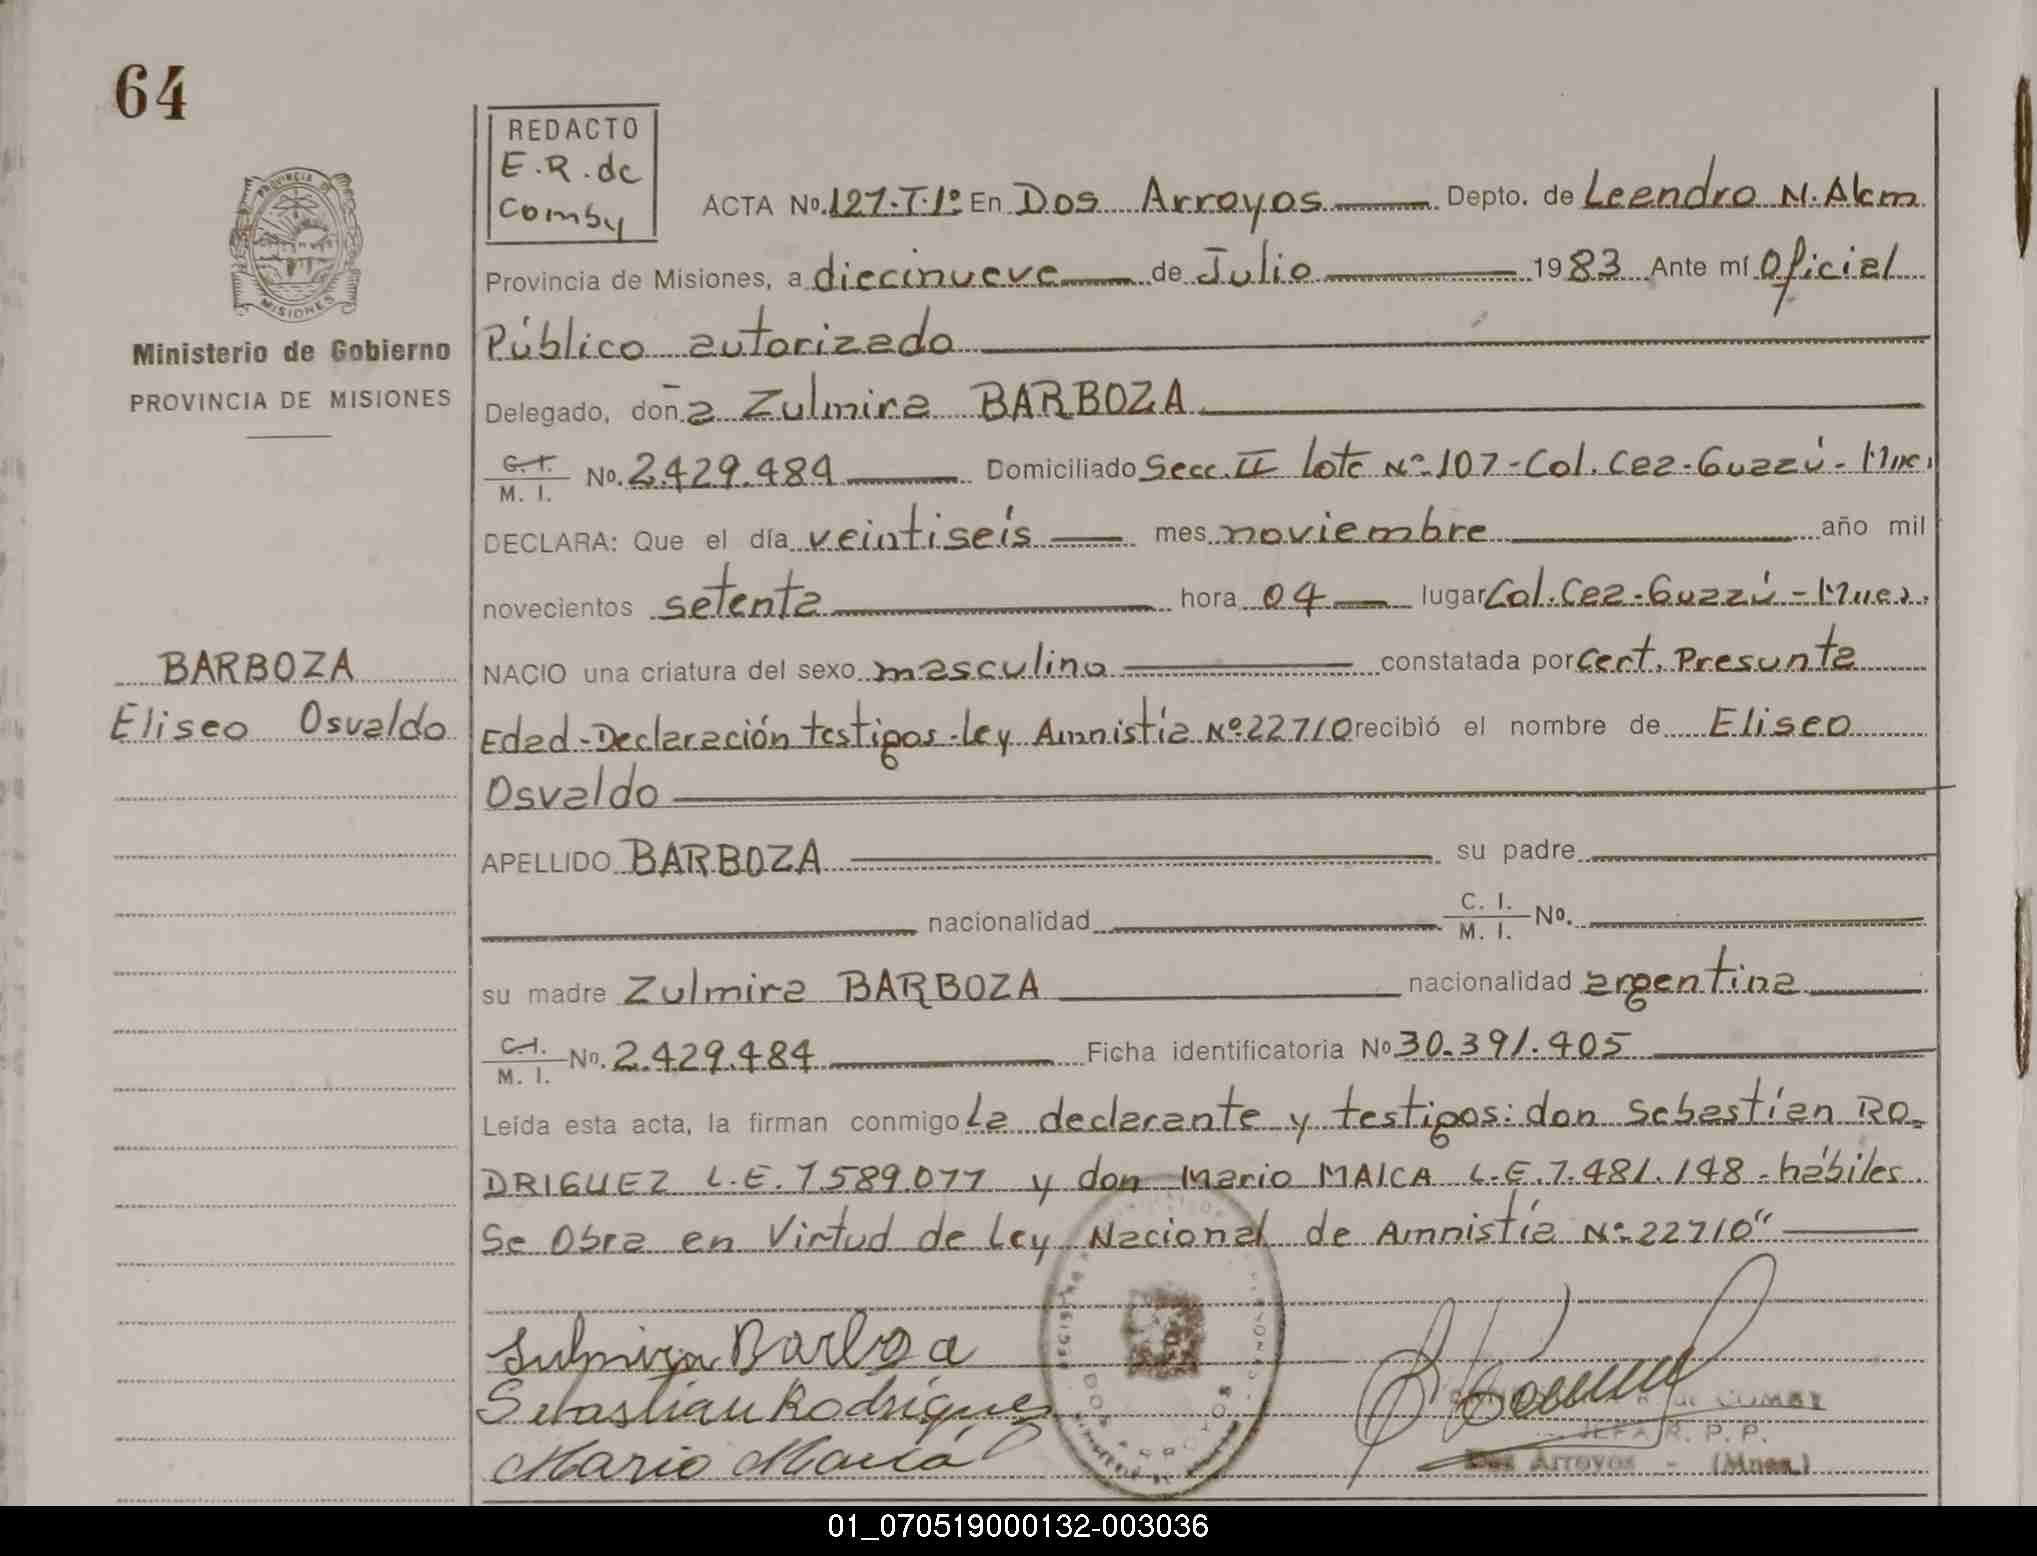 64
REDACTO
E.R. de
Comby
ACTA No. 127.T.1º En Dos Arroyos Depto. de Leandro N. Alem
Provincia de Misiones, a diecinueve de Julio 1983 Ante mí Oficial
Público autorizado
Ministerio de Gobierno
PROVINCIA DE MISIONES
Delegado, doña Zulmira BARBOZA
C. I. / M. I. No. 2.429.484 Domiciliado Secc. II lote Nº 107-Col. Caa-Guazú-Mnes.
DECLARA: Que el día veintiseís mes noviembre año mil
novecientos setenta hora 04 lugar Col. Caa-Guazú-Mnes.
NACIO una criatura del sexo masculino constatada por Cert. Presunta
BARBOZA
Eliseo Osvaldo
Edad-Declaración testigos-Ley Amnistía Nº 22710 recibió el nombre de Eliseo
Osvaldo
APELLIDO BARBOZA su padre
nacionalidad C. I. / M. I. No.
su madre Zulmira BARBOZA nacionalidad argentina
C. I. / M. I. No. 2.429.484 Ficha identificatoria No 30.391.405
Leída esta acta, la firman conmigo La declarante y testigos: don Sebastían RO-
DRIGUEZ L.E. 7589.077 y don Mario MAICA L.E. 7.481.148-hábiles
Se Obra en Virtud de Ley Nacional de Amnistía Nº 22710"
Sulmira Barboza
Sebastian Rodrigues
Mario Maica
DOS ARROYOS
de COMBY
JEFA R. P. P.
Dos Arroyos - (Mnes.)
01_070519000132-003036